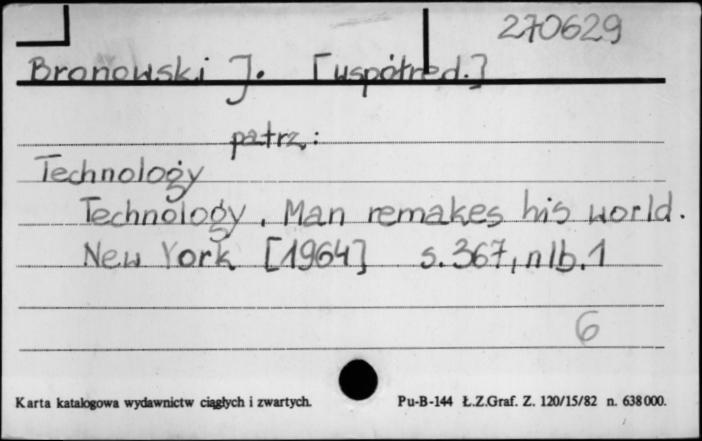 270629
Bronowski J. [współred.]
patrz:
Technology
Technology. Man remakes his world.
New York [1964] s. 367, nlb. 1
6
Karta katalogowa wydawnictw ciągłych i zwartych. Pu-B-144 Ł.Z.Graf. Z. 120/15/82 n. 638000.